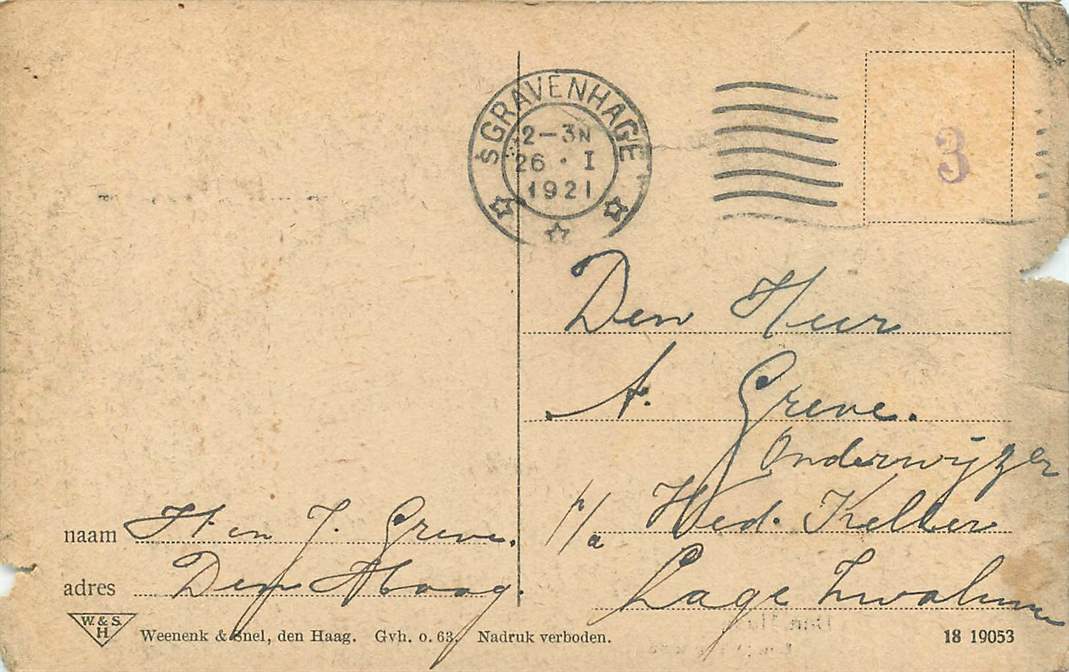 'SGRAVENHAGE
12-3N
26 · I
1921
3
Den Heer
A. Greve.
Onderwijzer
p/a Wed. Keller
Lage Zwaluwe
naam H en J. Greve.
adres Den Haag.
W. & S.
H
Weenenk & Snel, den Haag. Gvh. o. 63. Nadruk verboden.
18 19053